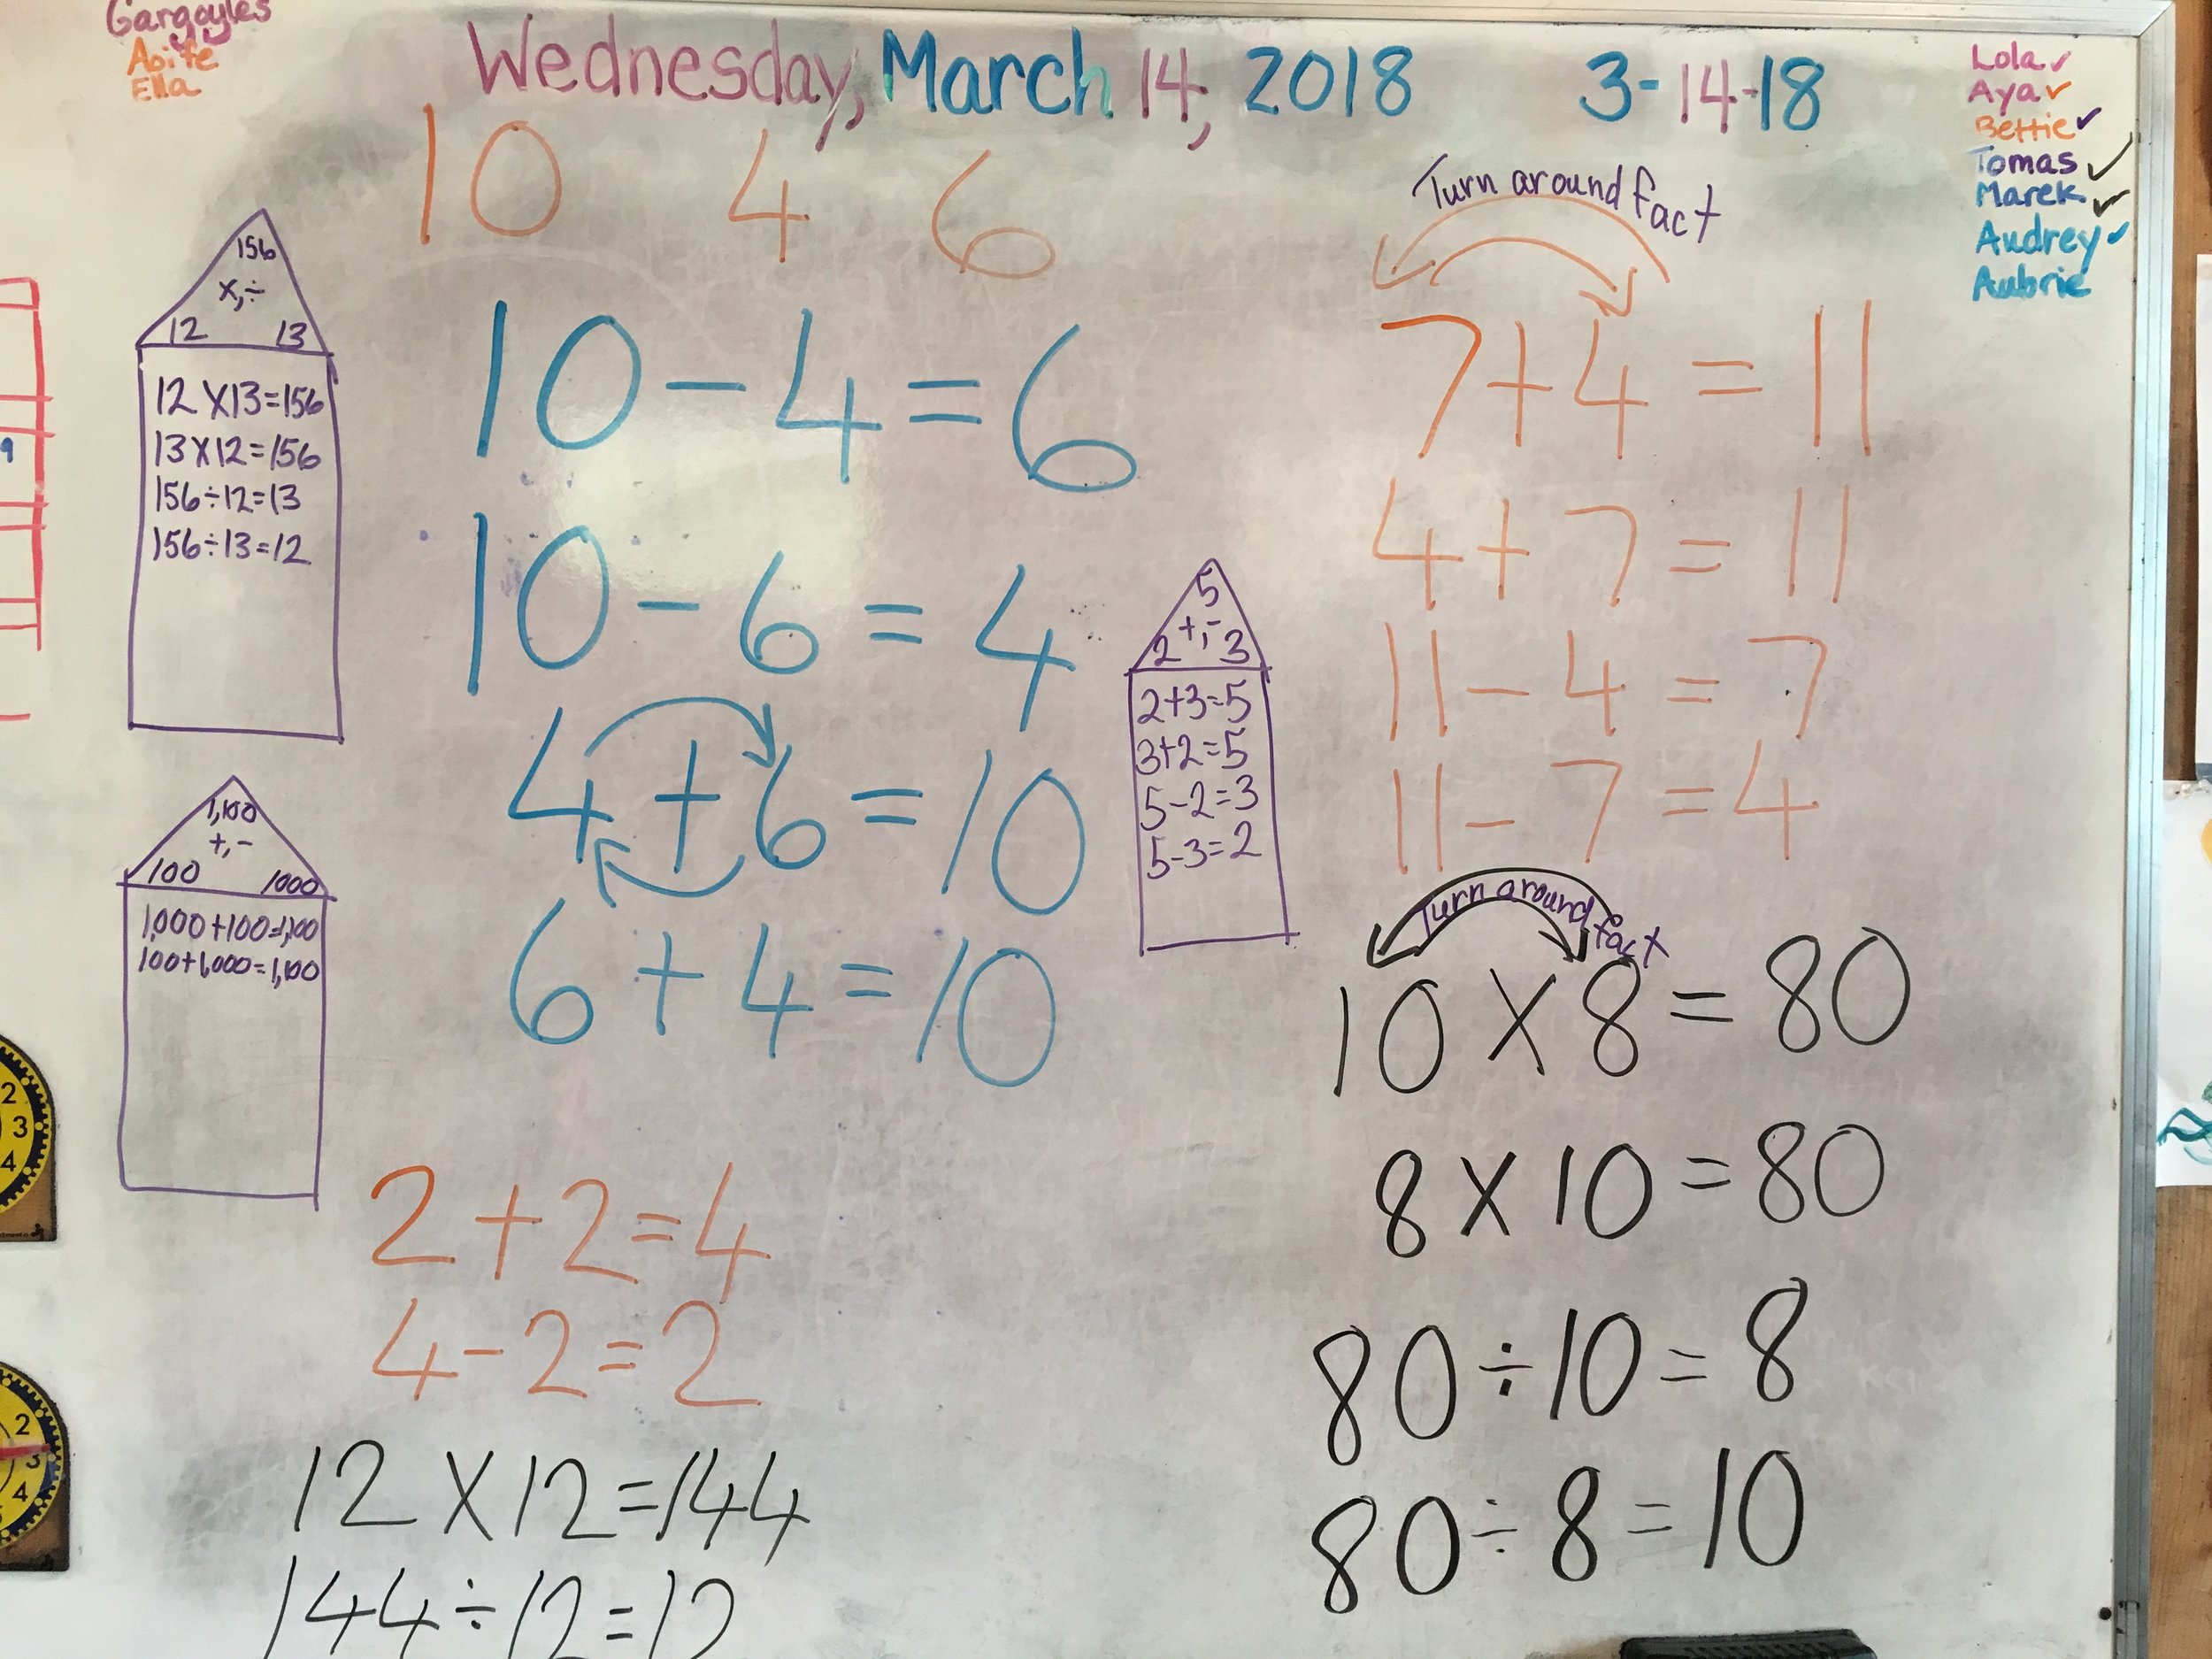 Gargoyles
Aoife
Ella
Wednesday, March 14, 2018 3-14-18
Lola ✓
Aya ✓
Bettie ✓
Tomas ✓
Marek ✓
Audrey ✓
Aubrie
10 4 6
10 - 4 = 6
10 - 6 = 4
4 + 6 = 10
6 + 4 = 10
156
x, ÷
12 13
12 X 13 = 156
13 X 12 = 156
156 ÷ 12 = 13
156 ÷ 13 = 12
1,100
+, -
100 1000
1,000 + 100 = 1,100
100 + 1,000 = 1,100
5
+, -
2 3
2 + 3 = 5
3 + 2 = 5
5 - 2 = 3
5 - 3 = 2
Turn around fact
7 + 4 = 11
4 + 7 = 11
11 - 4 = 7
11 - 7 = 4
Turn around fact
10 X 8 = 80
8 X 10 = 80
80 ÷ 10 = 8
80 ÷ 8 = 10
2 + 2 = 4
4 - 2 = 2
12 X 12 = 144
144 ÷ 12 = 12
9
2
3
4
2
3
4